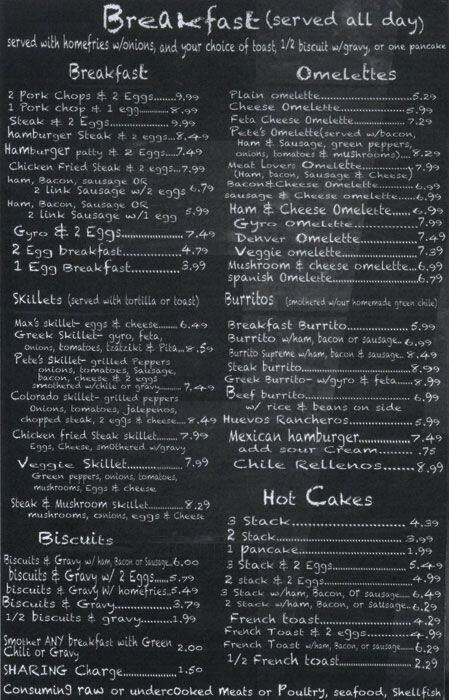 Breakfast (served all day)
served with homefries w/onions, and your choice of toast, 1/2 biscuit w/gravy, or one pancake
Breakfast
2 Pork Chops & 2 Eggs......9.99
1 Pork chop & 1 egg..........8.99
Steak & 2 Eggs..................9.99
hamburger Steak & 2 eggs...8.49
Hamburger patty & 2 Eggs....7.49
Chicken Fried Steak & 2 eggs...7.99
ham, Bacon, sausage OR
2 link Sausage w/2 eggs 6.79
Ham, Bacon, Sausage OR
2 link Sausage w/1 egg 5.99
Gyro & 2 Eggs..............7.49
2 Egg breakfast..............4.79
1 Egg Breakfast..............3.99
Skillets (served with tortilla or toast)
Max's skillet- eggs & cheese........6.49
Greek Skillet- gyro, feta,
onions, tomatoes, tzatziki & Pita...8.59
Pete's Skillet- grilled Peppers
onions, tomatoes, Sausage,
bacon, cheese & 2 eggs
smothered w/chile or gravy..........7.49
Colorado skillet- grilled peppers
Onions, tomatoes, jalepenos,
chopped steak, 2 eggs & cheese....8.49
Chicken fried Steak skillet........7.99
Eggs, Cheese, smothered w/gravy
Veggie Skillet..............7.99
Green peppers, onions, tomatoes,
mushrooms, Eggs & cheese
Steak & Mushroom Skillet.........8.29
mushrooms, onions, eggs & Cheese
Biscuits
Biscuits & Gravy w/ ham, Bacon or Sausage..6.00
biscuits & Gravy w/ 2 Eggs.....5.79
biscuits & Gravy W/ homefries..5.49
Biscuits & Gravy..............3.79
1/2 biscuits & gravy..........1.99
Smother ANY breakfast with Green
Chili or Gravy 2.00
SHARING Charge..............1.50
Omelettes
Plain omelette..............5.29
Cheese Omelette..............5.99
Feta Cheese Omelette..........7.29
Pete's Omelette(served w/bacon,
Ham & Sausage, green peppers,
onions, tomatoes & mushrooms)....8.29
Meat Lovers Omelette..........7.99
(Ham, bacon, Sausage & Cheese)
Bacon&Cheese Omelette..........6.99
sausage & Cheese omelette......6.99
Ham & Cheese Omelette....6.99
Gyro Omelette..............7.99
Denver Omelette..............7.49
Veggie omelette..............7.39
Mushroom & cheese omelette...6.99
spanish Omelette..............6.79
Burritos (smothered w/our homemade green chile)
Breakfast Burrito..............5.99
Burrito w/ham, bacon or sausage..6.99
Burrito Supreme w/ham, bacon & sausage..8.49
Steak burrito..............8.99
Greek Burrito- w/gyro & feta......8.99
Beef burrito..............6.99
w/ rice & beans on side
Huevos Rancheros..............5.99
Mexican hamburger..........7.49
add sour Cream..........75
Chile Rellenos..........8.99
Hot Cakes
3 Stack..............4.39
2 Stack..............3.99
1 pancake..............1.99
3 Stack & 2 Eggs..............5.49
2 stack & 2 Eggs..............4.99
3 Stack w/ham, Bacon, Or sausage...6.49
2 Stack w/ham, Bacon, Or Sausage...6.29
French toast..............4.29
French Toast & 2 eggs..........4.99
French Toast w/ham, Bacon, or sausage......6.29
1/2 French toast..............2.29
Consuming raw or undercooked meats or Poultry, seafood, Shellfish